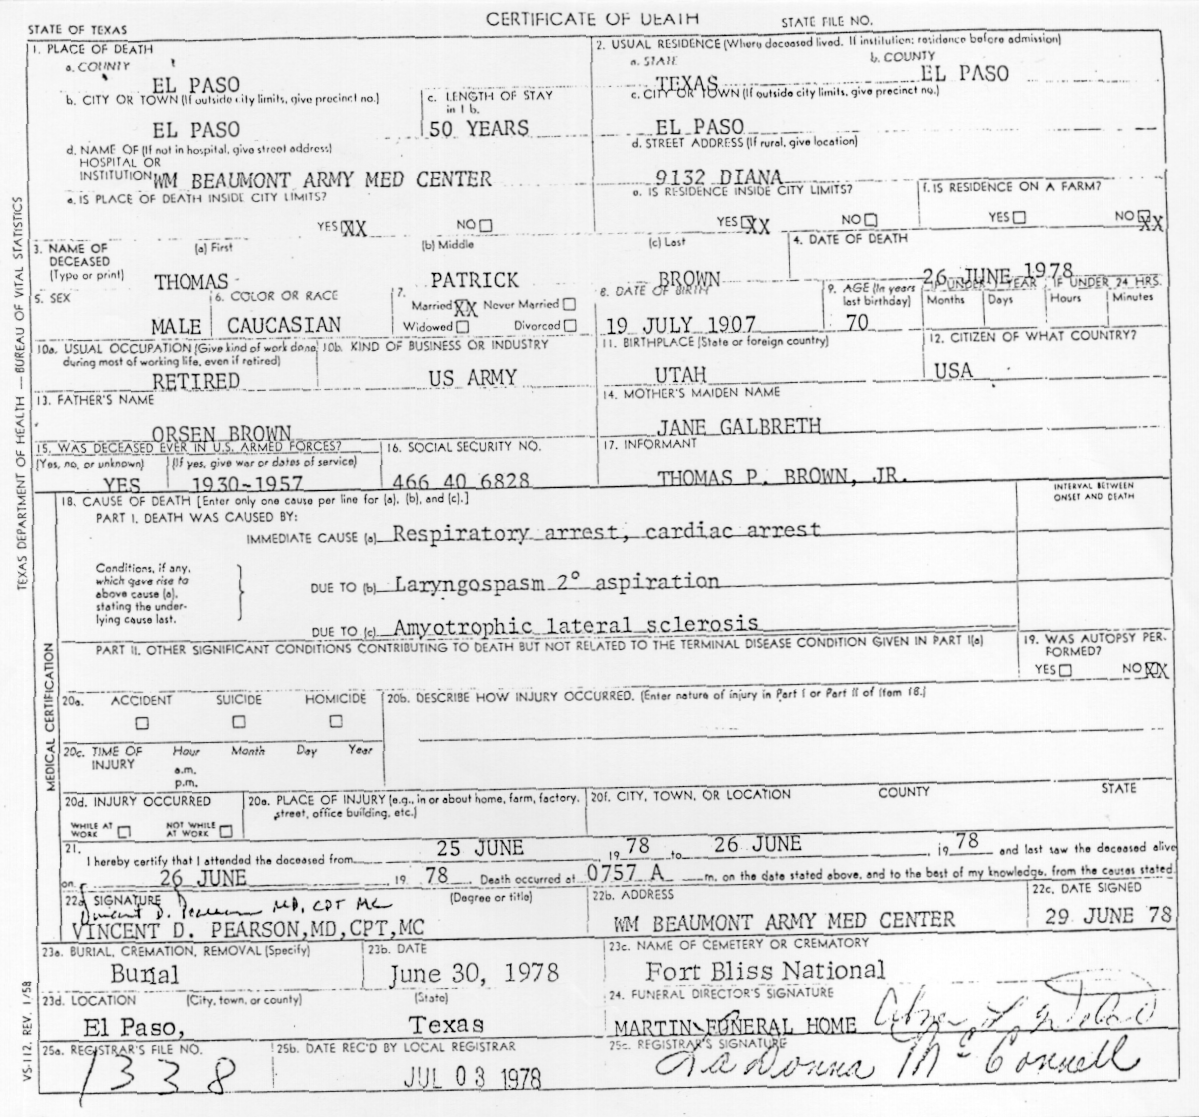 CERTIFICATE OF DEATH
STATE OF TEXAS
STATE FILE NO.
1. PLACE OF DEATH
a. COUNTY
EL PASO
b. CITY OR TOWN (If outside city limits, give precinct no.)
EL PASO
c. LENGTH OF STAY
in 1 b.
50 YEARS
d. NAME OF (If not in hospital, give street address)
HOSPITAL OR
INSTITUTION WM BEAUMONT ARMY MED CENTER
e. IS PLACE OF DEATH INSIDE CITY LIMITS?
YES XX NO
2. USUAL RESIDENCE (Where deceased lived. If institution: residence before admission)
a. STATE
TEXAS
b. COUNTY
EL PASO
c. CITY OR TOWN (If outside city limits, give precinct no.)
EL PASO
d. STREET ADDRESS (If rural, give location)
9132 DIANA
e. IS RESIDENCE INSIDE CITY LIMITS?
YES XX NO
f. IS RESIDENCE ON A FARM?
YES NO XX
3. NAME OF
DECEASED
(Type or print)
(a) First
THOMAS
(b) Middle
PATRICK
(c) Last
BROWN
4. DATE OF DEATH
26 JUNE 1978
5. SEX
MALE
6. COLOR OR RACE
CAUCASIAN
7.
Married XX Never Married
Widowed Divorced
8. DATE OF BIRTH
19 JULY 1907
9. AGE (In years
last birthday)
70
IF UNDER 1 YEAR
Months Days
IF UNDER 24 HRS.
Hours Minutes
10a. USUAL OCCUPATION (Give kind of work done
during most of working life, even if retired)
RETIRED
10b. KIND OF BUSINESS OR INDUSTRY
US ARMY
11. BIRTHPLACE (State or foreign country)
UTAH
12. CITIZEN OF WHAT COUNTRY?
USA
13. FATHER'S NAME
ORSEN BROWN
14. MOTHER'S MAIDEN NAME
JANE GALBRETH
15. WAS DECEASED EVER IN U.S. ARMED FORCES?
(Yes, no, or unknown)
YES
(If yes, give war or dates of service)
1930-1957
16. SOCIAL SECURITY NO.
466 40 6828
17. INFORMANT
THOMAS P. BROWN, JR.
18. CAUSE OF DEATH [Enter only one cause per line for (a), (b), and (c).]
PART I. DEATH WAS CAUSED BY:
INTERVAL BETWEEN
ONSET AND DEATH
IMMEDIATE CAUSE (a) Respiratory arrest, cardiac arrest
Conditions, if any,
which gave rise to
above cause (a),
stating the under-
lying cause last.
DUE TO (b) Laryngospasm 2° aspiration
DUE TO (c) Amyotrophic lateral sclerosis
PART II. OTHER SIGNIFICANT CONDITIONS CONTRIBUTING TO DEATH BUT NOT RELATED TO THE TERMINAL DISEASE CONDITION GIVEN IN PART I(a)
19. WAS AUTOPSY PER-
FORMED?
YES NO XX
20a. ACCIDENT SUICIDE HOMICIDE
20b. DESCRIBE HOW INJURY OCCURRED. (Enter nature of injury in Part I or Part II of item 18.)
20c. TIME OF
INJURY
Hour Month Day Year
a.m.
p.m.
20d. INJURY OCCURRED
WHILE AT
WORK
NOT WHILE
AT WORK
20e. PLACE OF INJURY (e.g., in or about home, farm, factory,
street, office building, etc.)
20f. CITY, TOWN, OR LOCATION COUNTY STATE
21.
I hereby certify that I attended the deceased from 25 JUNE, 19 78 to 26 JUNE, 19 78 and last saw the deceased alive
on 26 JUNE, 19 78. Death occurred at 0757 A m. on the date stated above, and to the best of my knowledge, from the causes stated.
22a SIGNATURE (Degree or title)
Vincent D. Pearson MD, CPT MC
VINCENT D. PEARSON,MD,CPT,MC
22b. ADDRESS
WM BEAUMONT ARMY MED CENTER
22c. DATE SIGNED
29 JUNE 78
23a. BURIAL, CREMATION, REMOVAL (Specify)
Burial
23b. DATE
June 30, 1978
23c. NAME OF CEMETERY OR CREMATORY
Fort Bliss National
23d. LOCATION (City, town, or county) (State)
El Paso, Texas
24. FUNERAL DIRECTOR'S SIGNATURE
MARTIN FUNERAL HOME
25a. REGISTRAR'S FILE NO.
1338
25b. DATE REC'D BY LOCAL REGISTRAR
JUL 03 1978
25c. REGISTRAR'S SIGNATURE
La Donna McConnell
TEXAS DEPARTMENT OF HEALTH — BUREAU OF VITAL STATISTICS
MEDICAL CERTIFICATION
VS-112, REV. 1/58